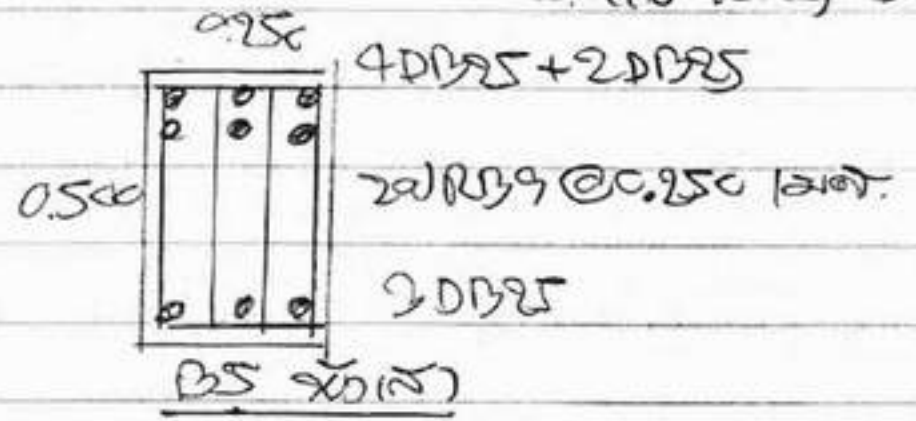 0.25c
4DB25+2DB25
0.500
2ป RB9 @0.250 เมตร.
3DB25
B5